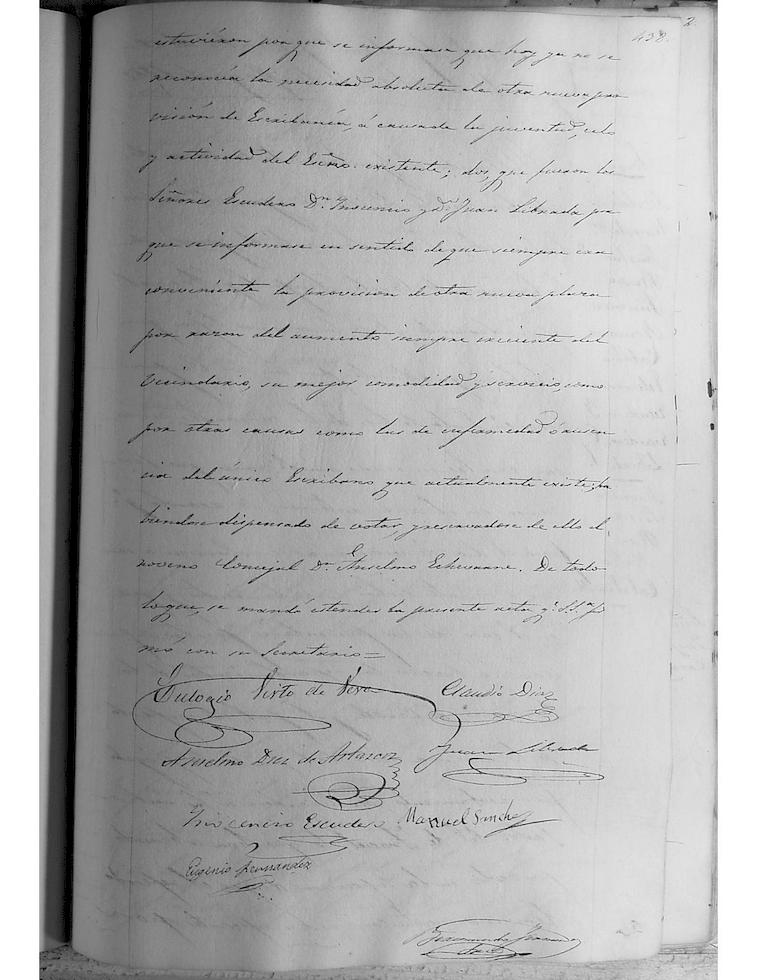 2.
438.
estuvieron por que se informase que hoy ya no se
reconocía la necesidad absoluta de otra nueva pro
visión de Escribanía, á causa de la juventud, celo
y actividad del Esno. existente; dos, que fueron los
Señores Escudero Dn. Inocencio y Dn. Juan Librada por
que se informase en sentido de que siempre era
conveniente la provision de otra nueva plaza
por razon del aumento siempre creciente del
Vecindario, su mejor comodidad y servicio, como
por otras causas como las de enfermedad ó ausen
cia del único Escribano que actualmente existe; ha
biendose dispensado de votar, y reservadose de ello el
noveno Concejal Dn. Anselmo Echevarne. De todo
lo que, se mandó estender la presente acta q. S.S.as fir
mó con su Secretario =
Eulogio Sixto de Vera Claudio Diaz
Anselmo Diez de Arlaron Juan Librada
Inocencio Escudero Manuel Sanchez
Eugenio Fernandez